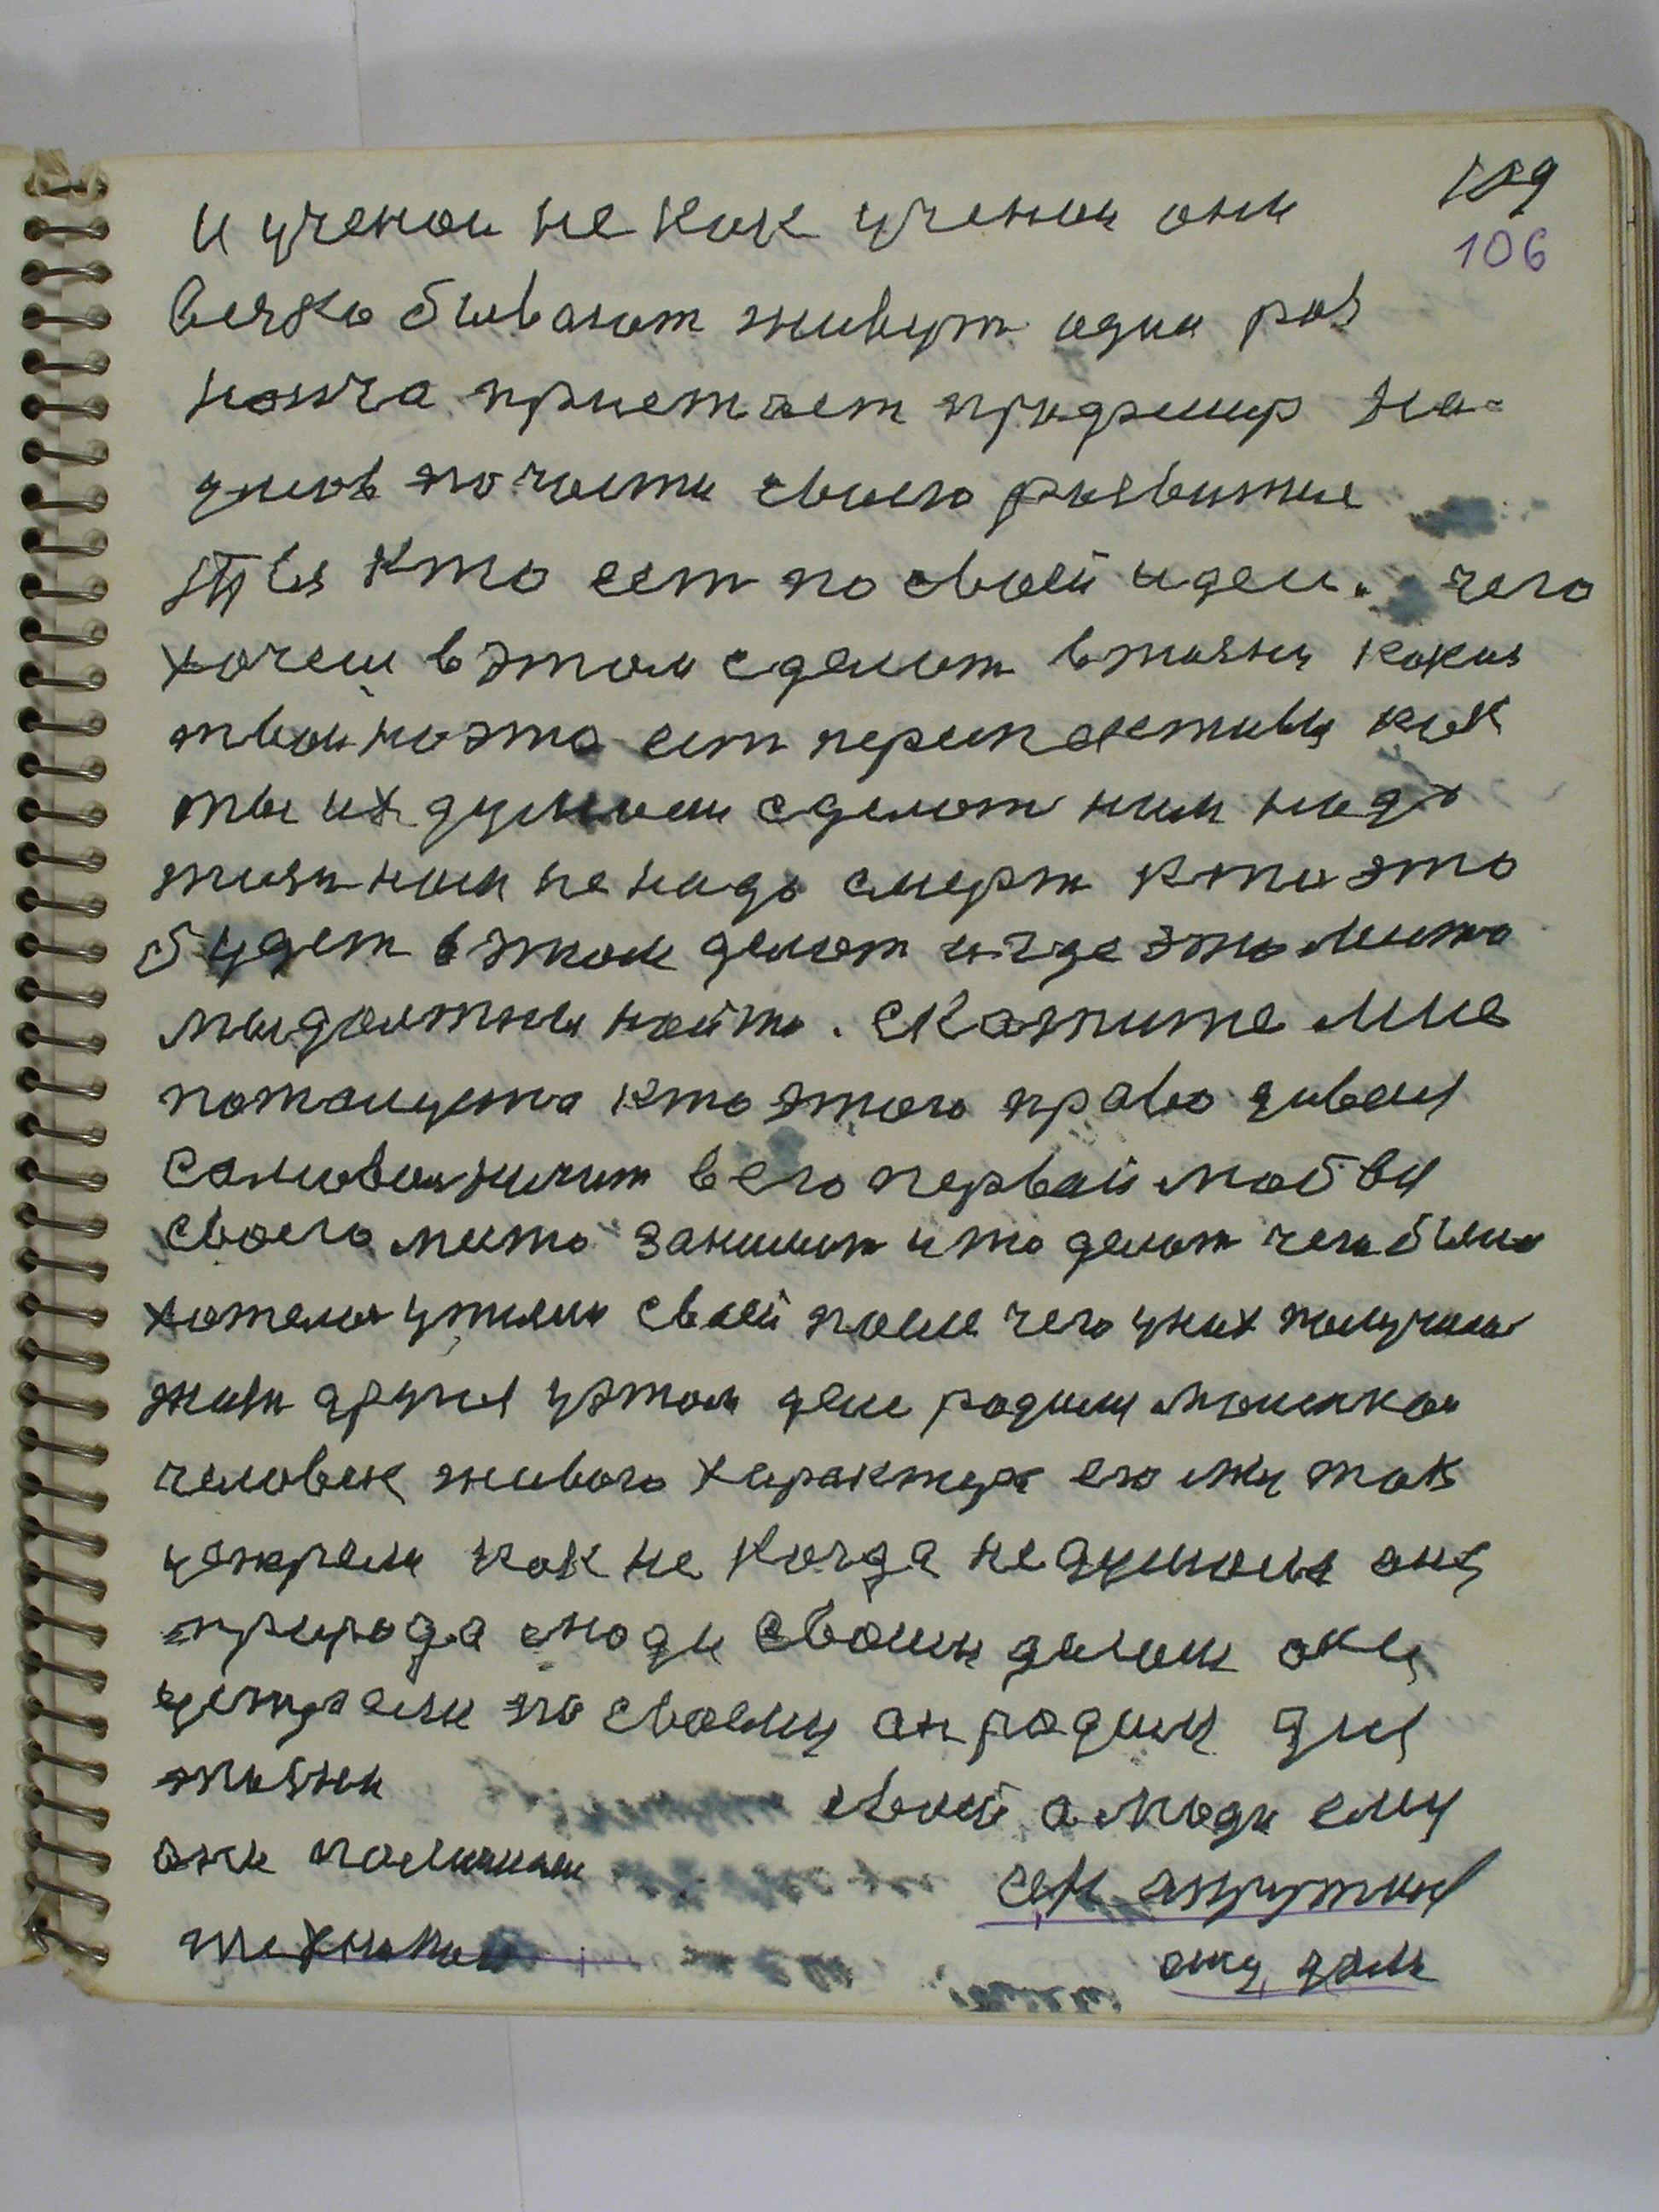 189
106
и ученои не как ученои они
всячко бывают живут один раз
приетжает
по части своего развитие
ты кто ест по своей идеи. чего
хочеш в этом сделат в жизни какая
твои на это ест перспективы как
ты их думаеш сделат нам надо
жизн нам не надо смерт кто это
будет в этом делат и где это место
мы должны найти. скажите мне
пожалуста кто этого право давал
самовольничат в его первой любви
своего место занимат и то делат чего было
хотелос у жизни своей поле чего у них получили
жизн другия у этом деле родилы маленкои
человек живого характера его мы так
устрели как не когда не думали ону
природа люди своим делом ону
устрели по своему он родилы для
жизни своей а люди ему
они помешали
техникои
ему дали